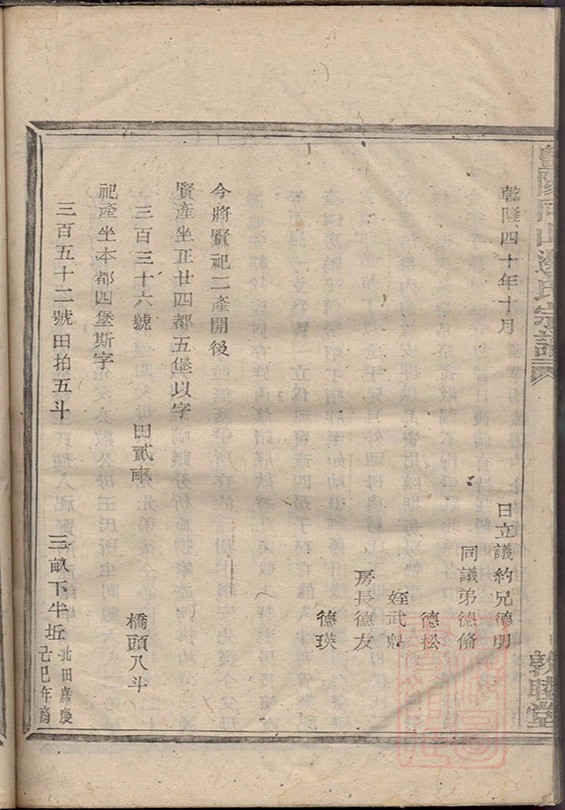 乾隆四十年十月　日立議約兄德明
同議弟德脩
德松
姪武
房長德友
德瑛
今將賢祀二產開後
賢產坐正廿四都五堡以字
三百三十六號　田貳畝　橋頭八斗
祀產坐本都四堡斯字
三百五十二號田拍五斗　三畝下半坵
此田嘉慶
己巳年
氏宗譜
敦睦堂